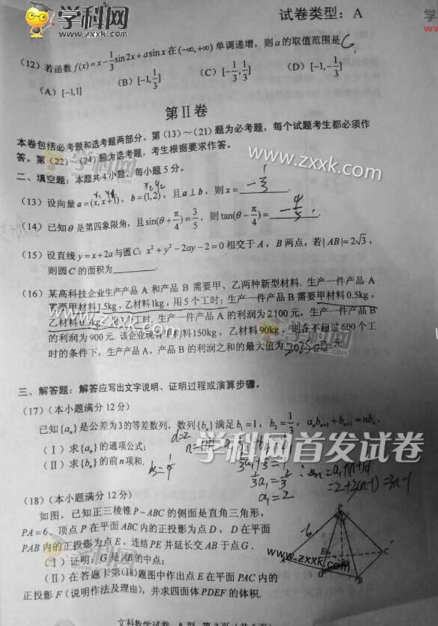 学科网
www.zxxk.com
试卷类型：A
(12) 若函数f(x)=x-1/3sin2x+asinx在(-∞,+∞)单调递增，则a的取值范围是C
(A) [-1,1] (B) [-1,1/3] (C) [-1/3,1/3] (D) [-1,-1/3]
第Ⅱ卷
本卷包括必考题和选考题两部分。第(13)～(21)题为必考题，每个试题考生都必须作
答。第(22)～(24)题为选考题，考生根据要求作答。
学科网
www.zxxk.com
二、填空题：本题共4小题，每小题5分。
(13) 设向量a=(x, x+1)，b=(1,2)，且a⊥b，则x=
(14) 已知θ是第四象限角，且sin(θ+π/4)=3/5，则tan(θ-π/4)=
(15) 设直线y=x+2a与圆C: x²+y²-2ay-2=0相交于A，B两点，若|AB|=2√3，
则圆C的面积为
(16) 某高科技企业生产产品A和产品B需要甲、乙两种新型材料. 生产一件产品A
需要甲材料1.5kg，乙材料1kg，用5个工时；生产一件产品B需要甲材料0.5kg，
乙材料0.3kg，用3个工时，生产一件产品A的利润为2100元，生产一件产品B
的利润为900元. 该企业现有甲材料150kg，乙材料90kg，则在不超过600个工
时的条件下，生产产品A、产品B的利润之和的最大值为
三、解答题：解答应写出文字说明、证明过程或演算步骤。
(17) (本小题满分12分)
已知{aₙ}是公差为3的等差数列，数列{bₙ}满足b₁=1，b₂=1/3，aₙbₙ₊₁+bₙ₊₁=nbₙ.
(Ⅰ) 求{aₙ}的通项公式；
(Ⅱ) 求{bₙ}的前n项和.
学科网首发试卷
a₁=2
=2+3(n-1)=3n-1
(18) (本小题满分12分)
如图，已知正三棱锥P-ABC的侧面是直角三角形，
PA=6，顶点P在平面ABC内的正投影为点D，D在平面
PAB内的正投影为点E，连结PE并延长交AB于点G.
(Ⅰ) 证明：G是AB的中点；
(Ⅱ) 在答题卡第(18)题图中作出点E在平面PAC内的
正投影F（说明作法及理由)，并求四面体PDEF的体积.
www.zxxk.com